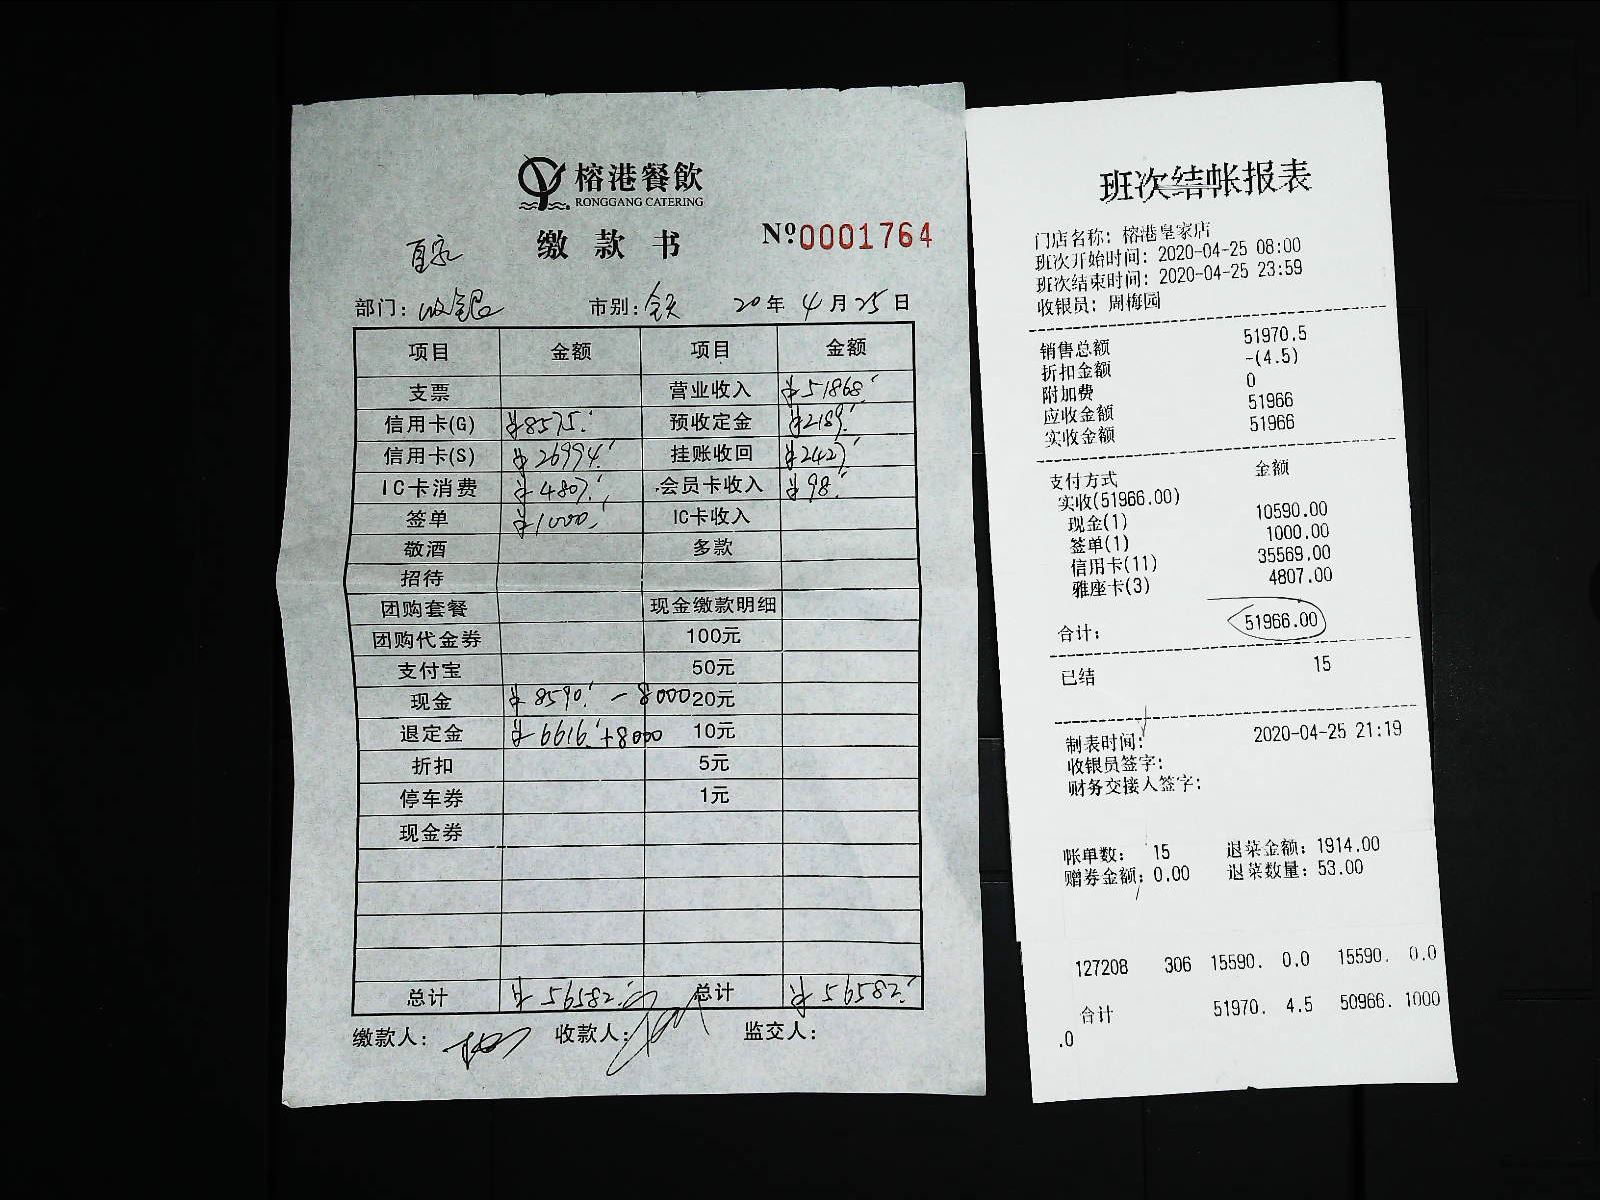 榕港餐飲
RONGGANG CATERING
皇家 缴款书 Nº0001764
部门: 收银 市别: 全天 20年4月25日
项目 金额 项目 金额
支票 营业收入 ¥51868.-
信用卡(G) ¥8575.- 预收定金 ¥2189.-
信用卡(S) ¥26994.- 挂账收回 ¥2427.-
IC卡消费 ¥4807.- 会员卡收入 ¥98.-
签单 ¥1000.- IC卡收入
敬酒 多款
招待
团购套餐 现金缴款明细
团购代金券 100元
支付宝 50元
现金 ¥8590.- -8000 20元
退定金 ¥6616.- +8000 10元
折扣 5元
停车券 1元
现金券
总计 ¥56582.- 总计 ¥56582.-
缴款人: 收款人: 监交人:
班次结帐报表
门店名称: 榕港皇家店
班次开始时间: 2020-04-25 08:00
班次结束时间: 2020-04-25 23:59
收银员: 周梅园
销售总额 51970.5
折扣金额 -(4.5)
附加费 0
应收金额 51966
实收金额 51966
支付方式 金额
实收(51966.00)
现金(1) 10590.00
签单(1) 1000.00
信用卡(11) 35569.00
雅座卡(3) 4807.00
合计: 51966.00
已结 15
制表时间: 2020-04-25 21:19
收银员签字:
财务交接人签字:
帐单数: 15 退菜金额: 1914.00
赠券金额: 0.00 退菜数量: 53.00
127208 306 15590. 0.0 15590. 0.0
合计 51970. 4.5 50966. 1000
.0